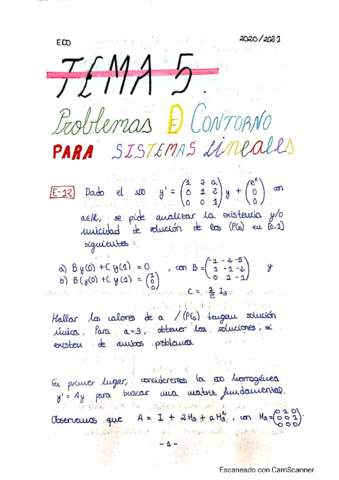 EDO 2020/2021
TEMA 5.
Problemas DE CONTORNO
PARA SISTEMAS Lineales
E-12 Dado el SDO y' = (1 2 a; 0 1 2; 0 0 1) y + (eˣ; 0; 0) con
a∈ℝ, se pide analizar la existencia y/o
unicidad de solución de los (PCa) en [0,1]
siguientes:
a) By(0) + Cy(1) = 0 , con B = (-1 -2 -5; 1 -1 -2; 0 1 -1) y
b) By(0) + Cy(1) = (1; 0; 0)
C = 1/e I₃
Hallar los valores de a / (PCa) tengan solución
única. Para a=3, obtener las soluciones, si
existen de ambos problemas.
En primer lugar, consideremos la SDO homogénea
y' = Ay para buscar una matriz fundamental.
Observamos que A = I + 2H₃ + aH₃², con H₃ = (0 1 0; 0 0 1; 0 0 0)
- 1 -
Escaneado con CamScanner